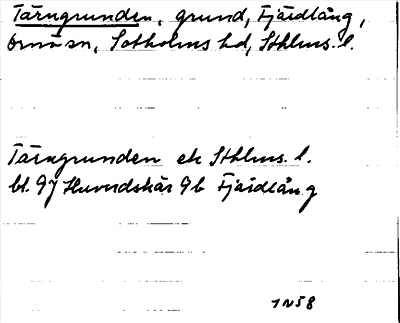 Tärngrunden, grund, Fjärdlång,
Ornö sn, Sotholms hd, Sthlms. l.
Tärngrunden ek Sthlms. l.
bl. 97 Huvudskär 9b Fjärdlång
1N58